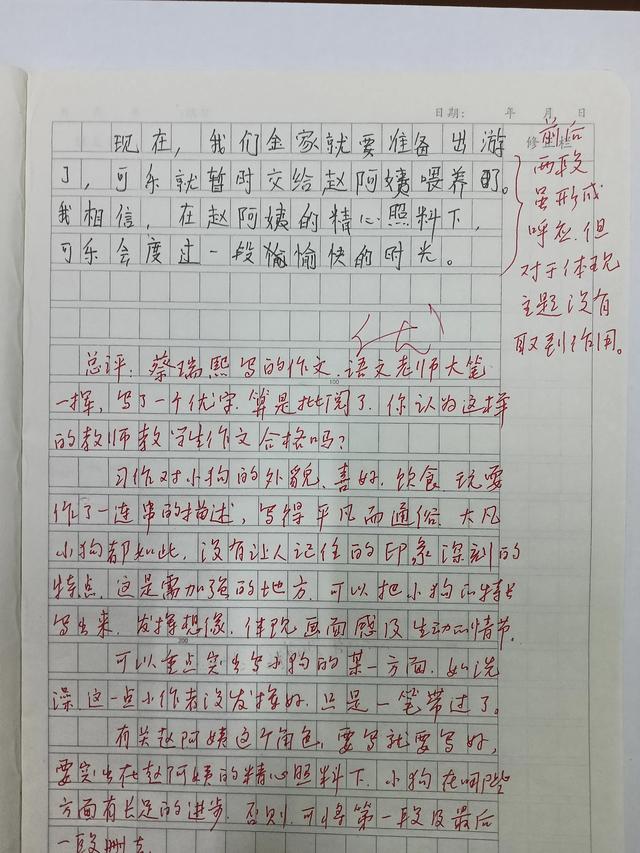 日期： 年 月 日
修 栏
现在，我们全家就要准备出游
了，可乐就暂时交给赵阿姨喂养了。
我相信，在赵阿姨的精心照料下，
可乐会度过一段愉愉快的时光。
前后
两段
虽形成
呼应，但
对于体现
主题没有
取到作用。
优
总评：蔡瑞熙写的作文，语文老师大笔
100
一挥，写了一个优字，算是批阅了，你认为这样
的教师教学生作文合格吗？
习作对小狗的外貌、喜好、饮食、玩耍
作了一连串的描述，写得平凡而通俗，大凡
小狗都如此，没有让人记住的印象深刻的
特点，这是需加强的地方，可以把小狗的特长
写出来，发挥想像，体现画面感及生动的情节。
200
可以重点突出写小狗的某一方面，如洗
澡这一点小作者没发挥好，只是一笔带过了。
有关赵阿姨这个角色，要写就要写好，
要突出在赵阿姨的精心照料下，小狗在哪些
方面有长足的进步，否则，可将第一段及最后
一段删去